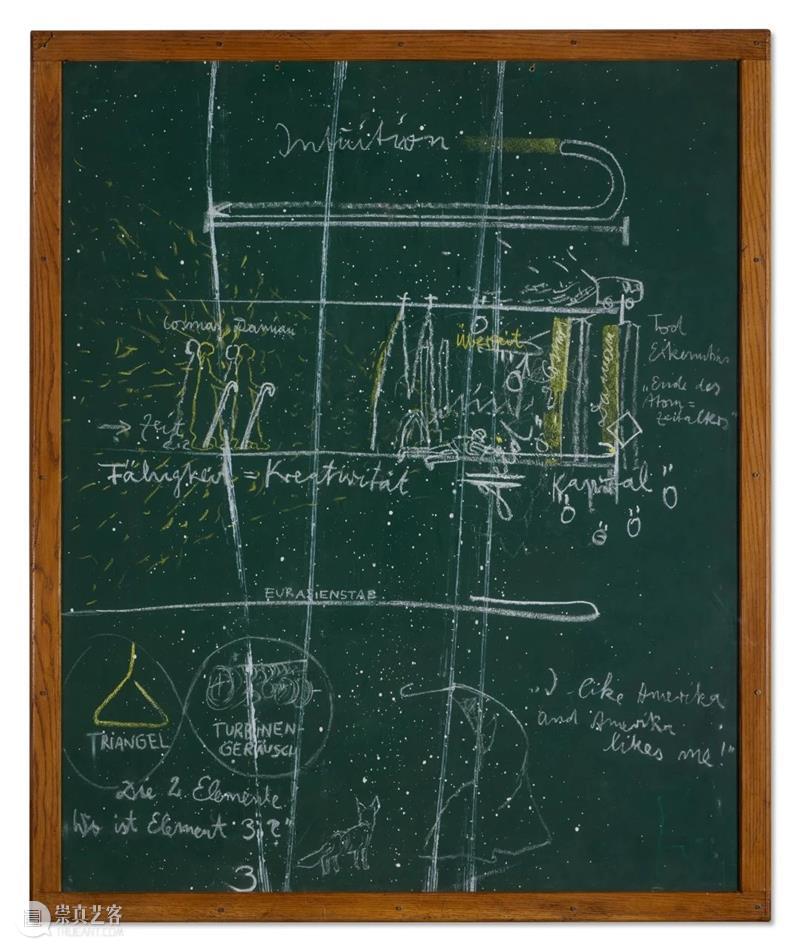 Intuition
Cosmas Damian
Überzeit
Tod
"Ende des
Atom=
zeitalters"
→ Zeit
Fähigkeit = Kreativität
Kapital
Ö
Ö
Ö
Ö
EURASIENSTAB
TRIANGEL
TURBINEN-
GERÄUSCH
"I like Amerika
and Amerika
likes me!"
Die 2 Elemente
Wo ist Element 3 ?"
3
崇真艺客
TRUEART.COM